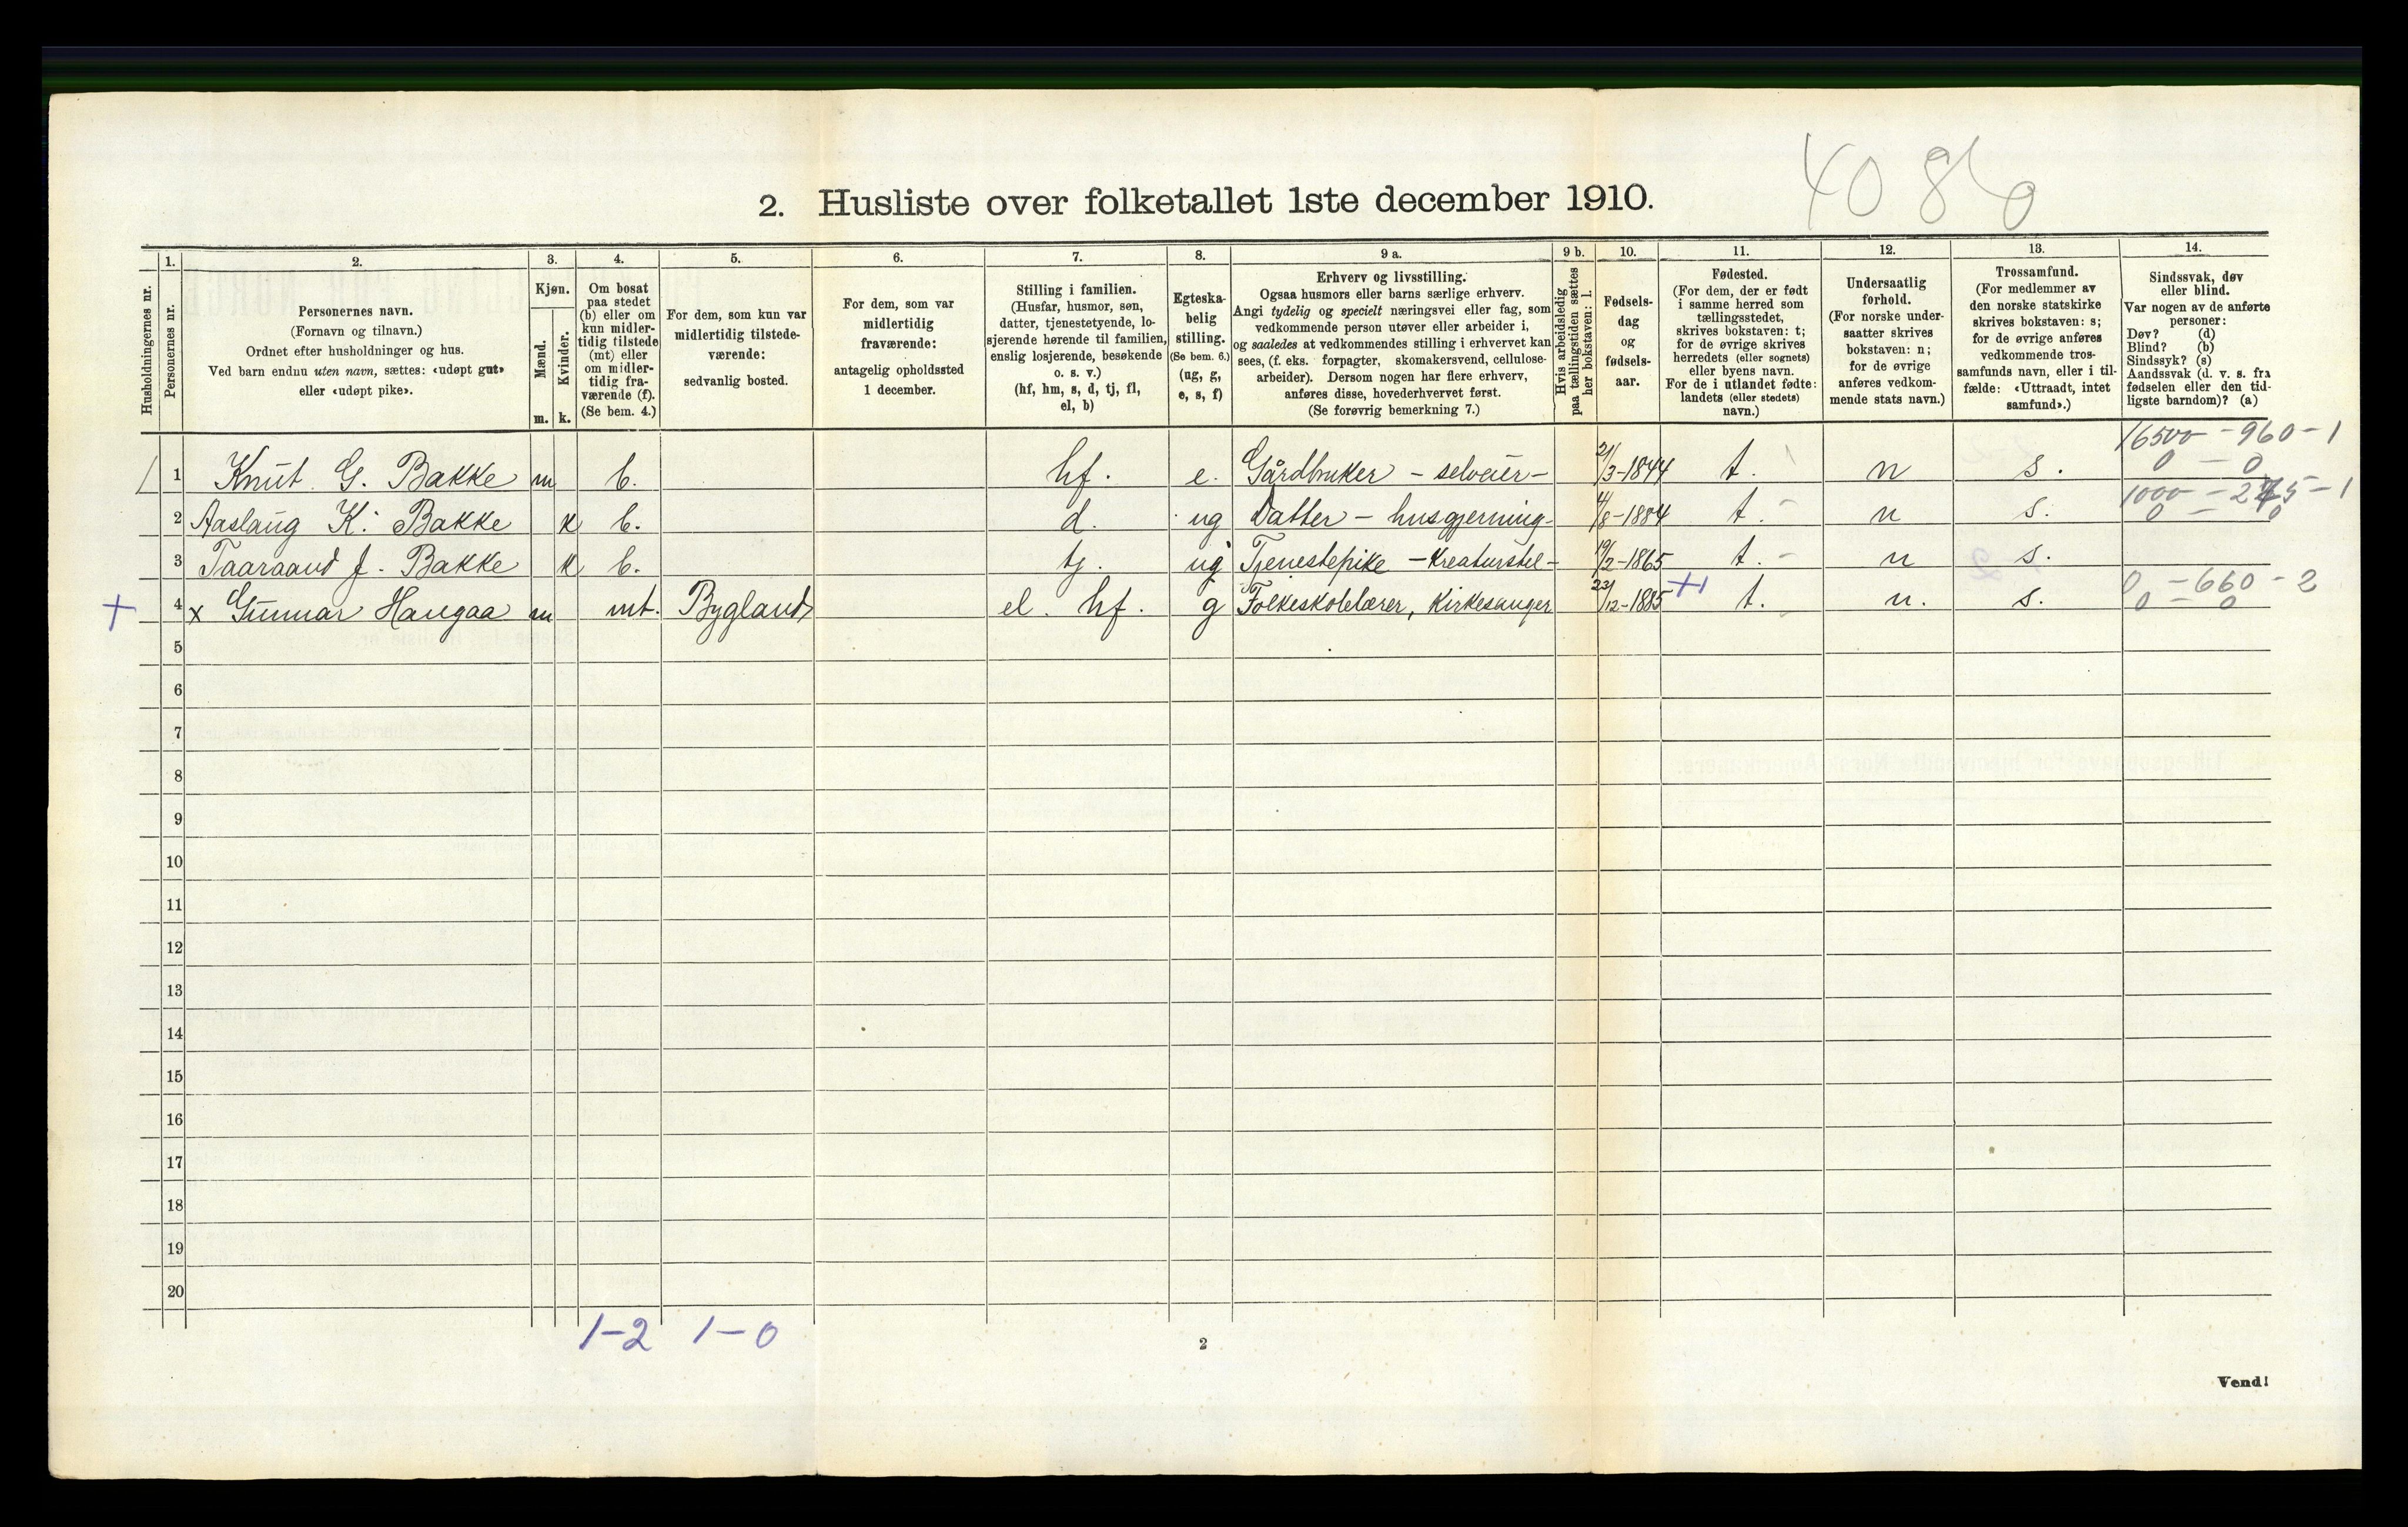 40 86
2. Husliste over folketallet 1ste december 1910.
Husholdningernes nr.
1. Personernes nr.
2. Personernes navn. (Fornavn og tilnavn.) Ordnet efter husholdninger og hus. Ved barn endnu uten navn, sættes: «udøpt gut» eller «udøpt pike».
3. Kjøn. Mænd. m. Kvinder. k.
4. Om bosat paa stedet (b) eller om kun midlertidig tilstede (mt) eller om midlertidig fraværende (f). (Se bem. 4.)
5. For dem, som kun var midlertidig tilstedeværende: sedvanlig bosted.
6. For dem, som var midlertidig fraværende: antagelig opholdssted 1 december.
7. Stilling i familien. (Husfar, husmor, søn, datter, tjenestetyende, losjerende hørende til familien, enslig losjerende, besøkende o. s. v.) (hf, hm, s, d, tj, fl, el, b)
8. Egteskabelig stilling. (Se bem. 6.) (ug, g, e, s, f)
9 a. Erhverv og livsstilling. Ogsaa husmors eller barns særlige erhverv. Angi tydelig og specielt næringsvei eller fag, som vedkommende person utøver eller arbeider i, og saaledes at vedkommendes stilling i erhvervet kan sees, (f. eks. forpagter, skomakersvend, cellulosearbeider). Dersom nogen har flere erhverv, anføres disse, hovederhvervet først. (Se forøvrig bemerkning 7.)
9 b. Hvis arbeidsledig paa tællingstiden sættes her bokstaven: l.
10. Fødselsdag og fødselsaar.
11. Fødested. (For dem, der er født i samme herred som tællingsstedet, skrives bokstaven: t; for de øvrige skrives herredets (eller sognets) eller byens navn. For de i utlandet fødte: landets (eller stedets) navn.)
12. Undersaatlig forhold. (For norske undersaatter skrives bokstaven: n; for de øvrige anføres vedkommende stats navn.)
13. Trossamfund. (For medlemmer av den norske statskirke skrives bokstaven: s; for de øvrige anføres vedkommende trossamfunds navn, eller i tilfælde: «Uttraadt, intet samfund».)
14. Sindssvak, døv eller blind. Var nogen av de anførte personer: Døv? (d) Blind? (b) Sindssyk? (s) Aandssvak (d. v. s. fra fødselen eller den tidligste barndom)? (a)
16500 - 960 - 1
1 Knut G. Bakke m b. hf. e. Gårdbruker - selveier - 21/3-1844 t. n s. 0 - 0
1000 - 275 - 1
2 Aaslaug K. Bakke k b. d. ug Datter - husgjerning - 4/8-1884 t. - n s. 0 - 0
3 Taaraand J. Bakke k b. tj. ug Tjenestepike - Kreaturstel - 19/2-1865 t. - n s.
0 - 660 - 2
+ 4 x Gunnar Haugaa m mt. Bygland el. hf. g Folkeskolelærer, Kirkesanger 23/12-1885 t. n. s. 0 - 0
5
6
7
8
9
10
11
12
13
14
15
16
17
18
19
20
1-2 1-0
2
Vend!